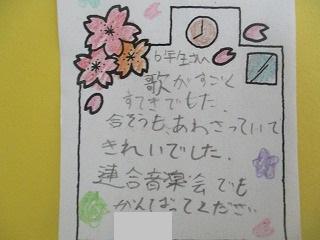 6年生さんへ
歌がすごく
すてきでもた。
合そうも、あわさっていて
きれいでした。
連合音楽会でも
がんばってください